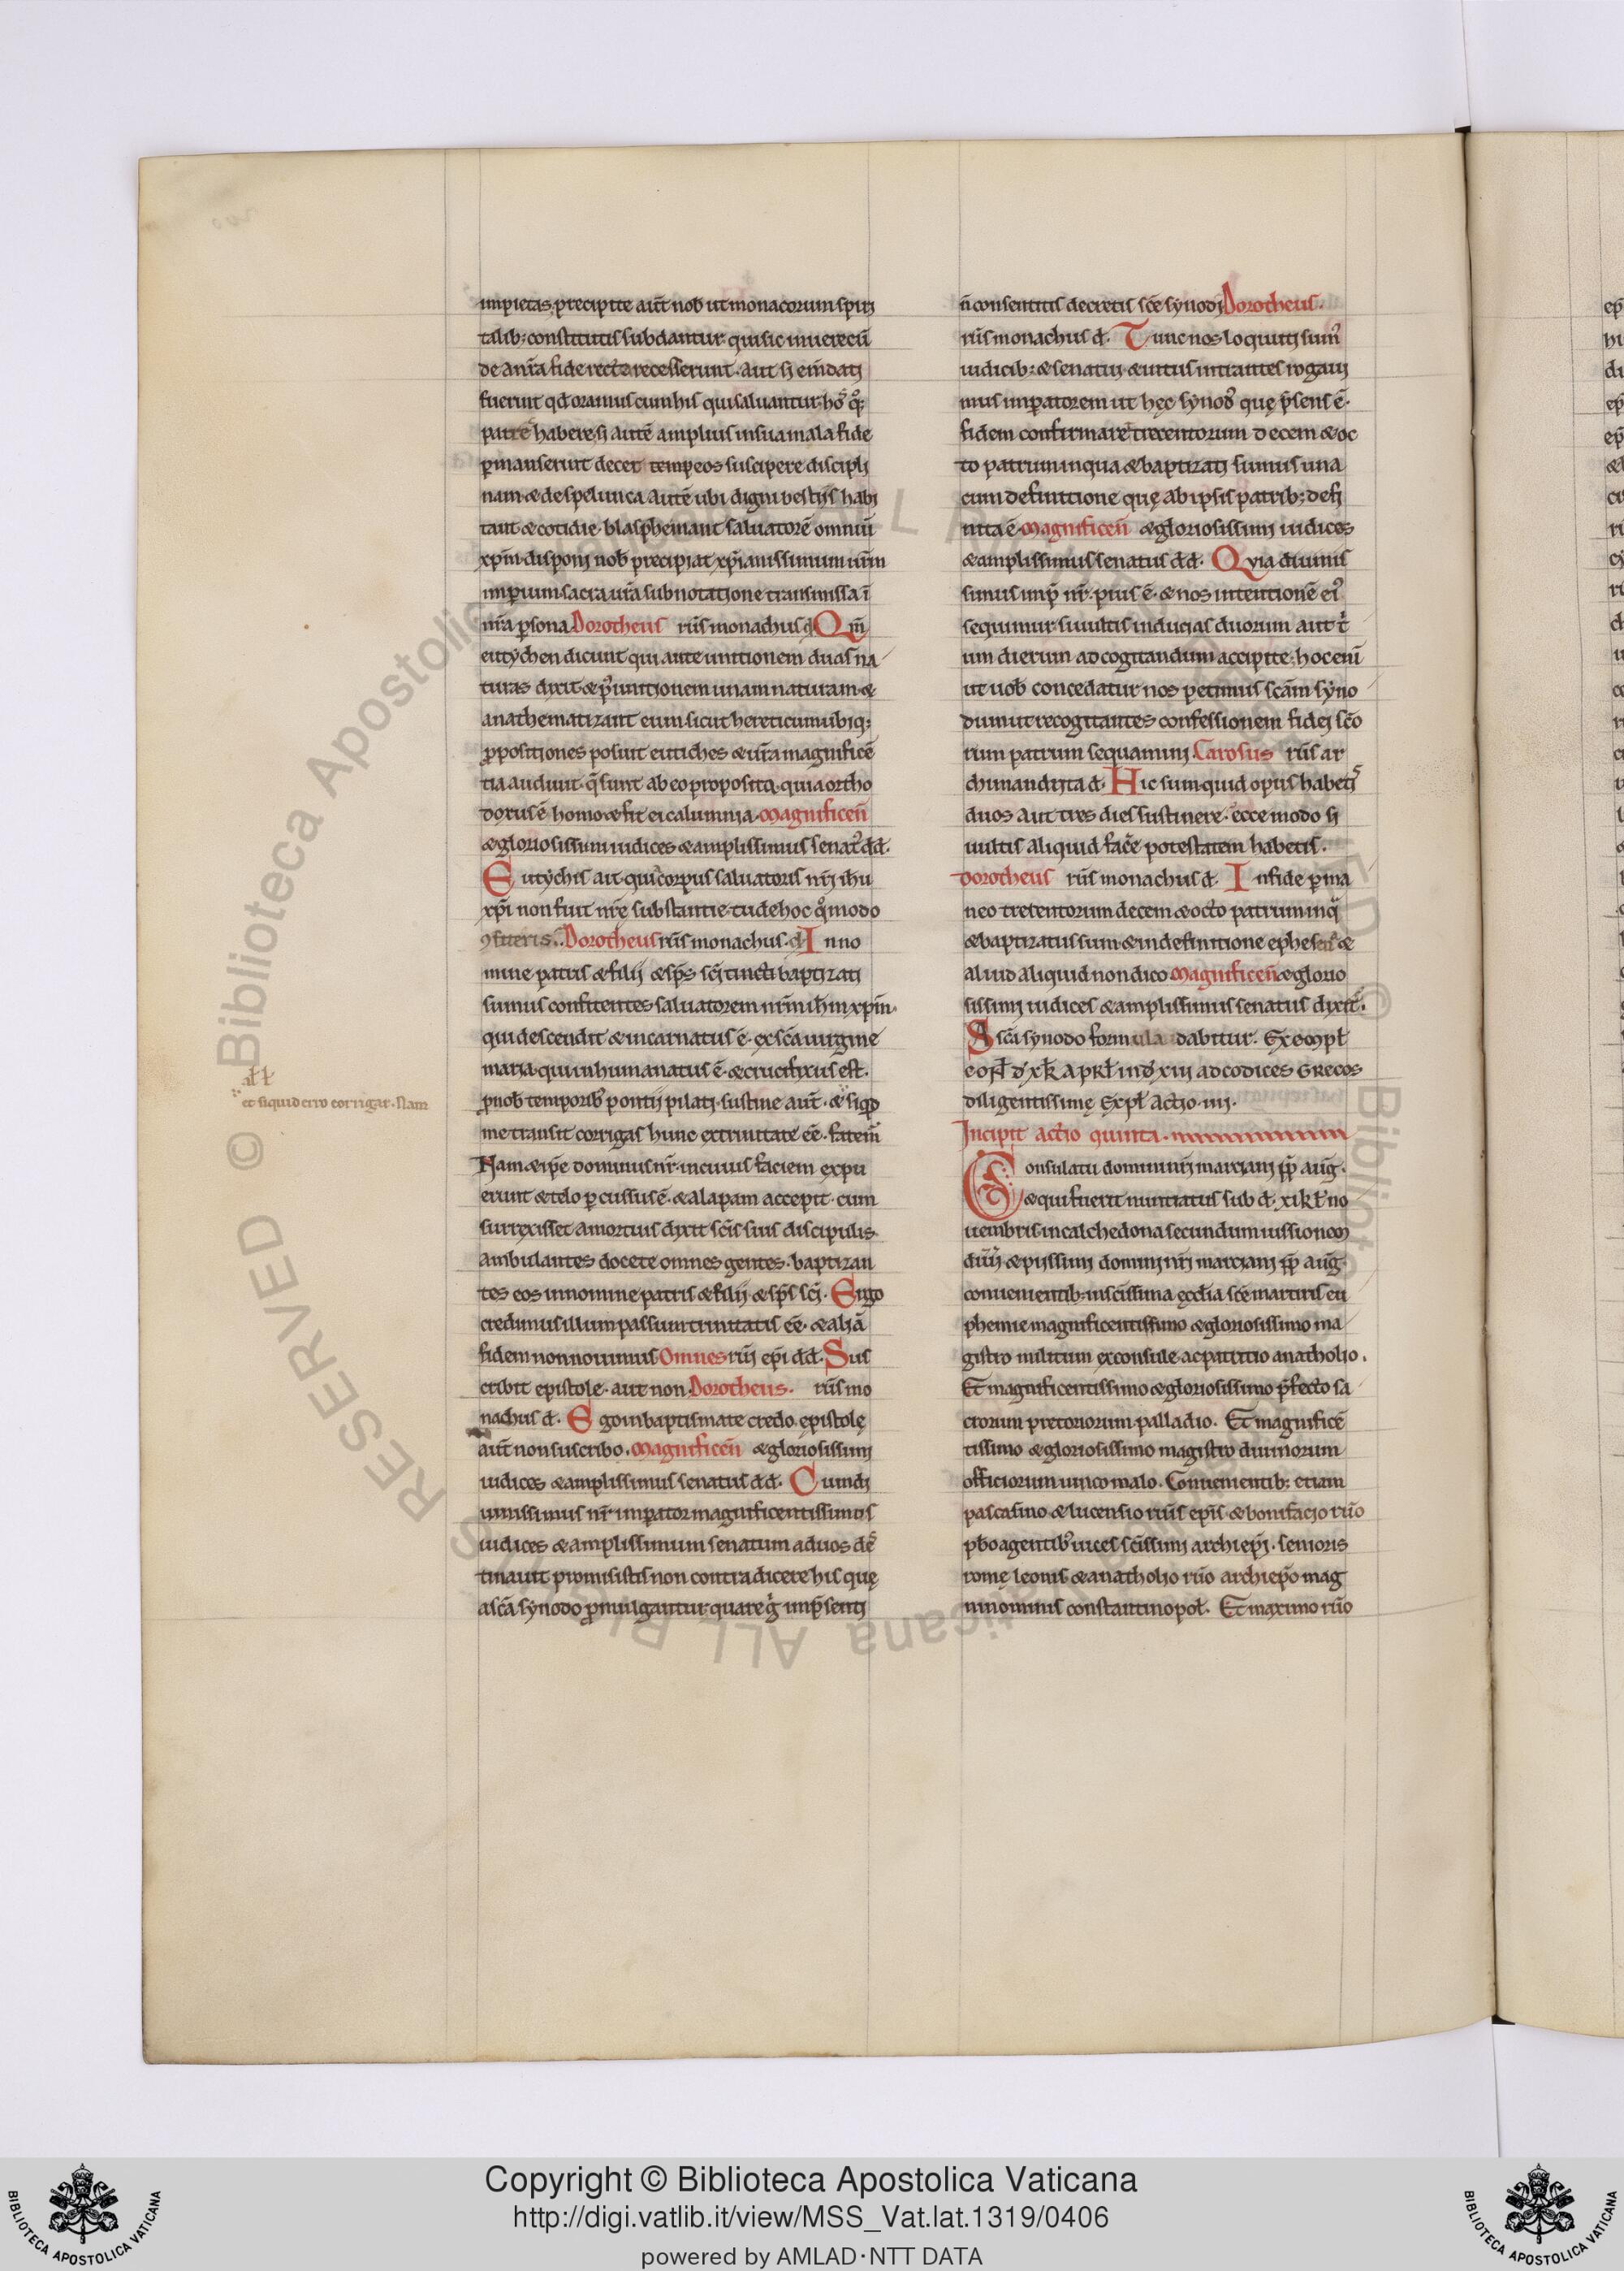 impietas. precipite aut̄ nob̄ ut monacorum spirȷ
talib; constitutis subdantur. qui sic inuerecū
de anr̄a fide recte recesserunt. aut si em̄dati
fuerint qd̄ oramus cum his qui saluantur
patre habere. si autē amplius in sua mala fide
ꝑmanserint decet temp eos suscipere discipli
nam & de spelunca autē ubi digni bestijs habi
tant & cotidie blasphemant saluatorē omniū
xp̄m disponi nob̄ precipiat xp̄ianissimum ur̄m
imperium sacra ur̄a subnotatione transmissa ī
nr̄a ꝑsona. Dorotheus rūs monachus d̄. Qm̄
eutychen dicunt qui ante unitionem duas na
turas dixit & p᷒ unitionem unam naturam &
anathematizant eum sicut hereticum ubiq;
ꝓpositiones posuit eutiches & ur̄a magnificē
tia audiuit. q̄ sunt ab eo proposita. quia ortho
doxus ē homo & fit ei calumnia. Magnificen̄
& gloriosissimi iudices & amplissimus senat᷒ d̄d̄.
Eutychis ait. quia corpus saluatoris nr̄i ih̄u
xp̄i non fuit nr̄ę substantie. tu de hoc q̊modo
ꝯfiteris. Dorotheus rūs monachus. d̄. In no
mine patris & filij & sp̄s sc̄i tincti baptizati
sumus confitentes saluatorem nr̄m ih̄m xp̄m.
qui descendit & incarnatus ē. ex sc̄a uirgine
maria. qui inhumanatus ē. & crucifixus est.
ꝓ nob̄ temporib᷒ pontij pilati. sustine aut̄. & siqd̄
me transit corrigas hunc ex trinitate eē. fatem̄
Nam & ip̄e dominus nr̄. in cuius faciem expu
erunt & telo ꝑcussus ē. & alapam accepit. cum
surrexisset a mortuis dixit sc̄is suis discipulis.
ambulantes docete omnes gentes. baptizan
tes eos in nomine patris & filij. & sp̄s sc̄i. Ergo
credimus illum passum trinitatis eē. & aliā
fidem non nouimus. Omnes rūi ep̄i d̄d̄. Sus
cribit epistole. aut non. Dorotheus. rūs mo
nachus d̄. Ego in baptismate credo. epistolę
aut̄ non suscribo. Magnificen̄ & gloriosissimi
iudices & amplissimus senatus d̄d̄. Cum di
uinissimus nr̄ imꝑator magnificentissimos
iudices & amplissimum senatum ad uos dē
tinauit promisistis non contradicere his quę
a sc̄a synodo ꝓmulgantur. quare g᷒ imp̄senti
all
et siquid erro corrigar. Nam
n̄ consentitis decretis sc̄e synodi. Dorotheus.
rūs monachus d̄. Tunc nos loquuti sum᷒
iudicib; & senatui. & intus intrantes rogaui
mus imꝑatorem ut hęc synod᷒ quę p̄sens ē.
fidem confirmare trecentorum decem & oc
to patrum in qua & baptizati sumus una
cum definitione quę ab ipsis patrib; defi
nita ē. Magnificen̄ & gloriosissimi iudices
& amplissimus senatus d̄d̄. Quia diuinis
simus imp̄ nr̄. pius ē. & nos intentionē ei᷒
sequimur. si uultis inducias duorum aut t᷒
um dierum ad cogitandum accipite. hoc enī
ut uob̄ concedatur nos petimus sc̄am syno
dum ut recogitantes confessionem fidei sc̄o
rum patrum sequamini. Carosus rūs ar
chimandrita d̄. Hic sum quid opus habetis
duos aut tres dies sustinere. ecce modo si
uultis aliquid facere potestatem habetis.
Dorotheus rūs monachus d̄. In fide ꝑma
neo tretentorum decem & octo patrum in q̄
& baptizatus sum & in definitione ephesena &
aliud aliquid non dico. Magnificen̄ & glorio
sissimi iudices & amplissimus senatus dixit.
A sc̄a synodo formula dabitur. Exempl̄
eoꝝ d̄ x kl̄ Aprl̄ ind̄ xiii ad codices Grecos
diligentissimę Expl̄ Actio .iiii.
Incipit actio quinta.
Consulatu domini nr̄i marciani ꝑp̄ auḡ.
& qui fuerit nuntiatus sub d̄. xi kl̄ no
uembris in calchedona secundum iussionem
diuī & piissimi domini nr̄i marciani ꝑp̄ auḡ.
conuenientib; in sc̄issima ęcclia sc̄ē martiris eu
phemie magnificentissimo & gloriosissimo ma
gistro militum exconsule. ac patritio anatholio.
Et magnificentissimo & gloriosissimo p̄fecto sa
crorum pretoriorum palladio. Et magnificē
tissimo & gloriosissimo magistro diuinorum
officiorum uincomalo. Conuenientib; etiam
pascasino & lucensio rūis ep̄is & bonifacio rūo
pb̄o agentib᷒ uices sc̄issimi archiep̄i. senioris
rome leonis & anatholio rūo archiep̄o mag
ninominis constantinopol̄. Et maximo rūo
Copyright © Biblioteca Apostolica Vaticana
http://digi.vatlib.it/view/MSS_Vat.lat.1319/0406
powered by AMLAD·NTT DATA